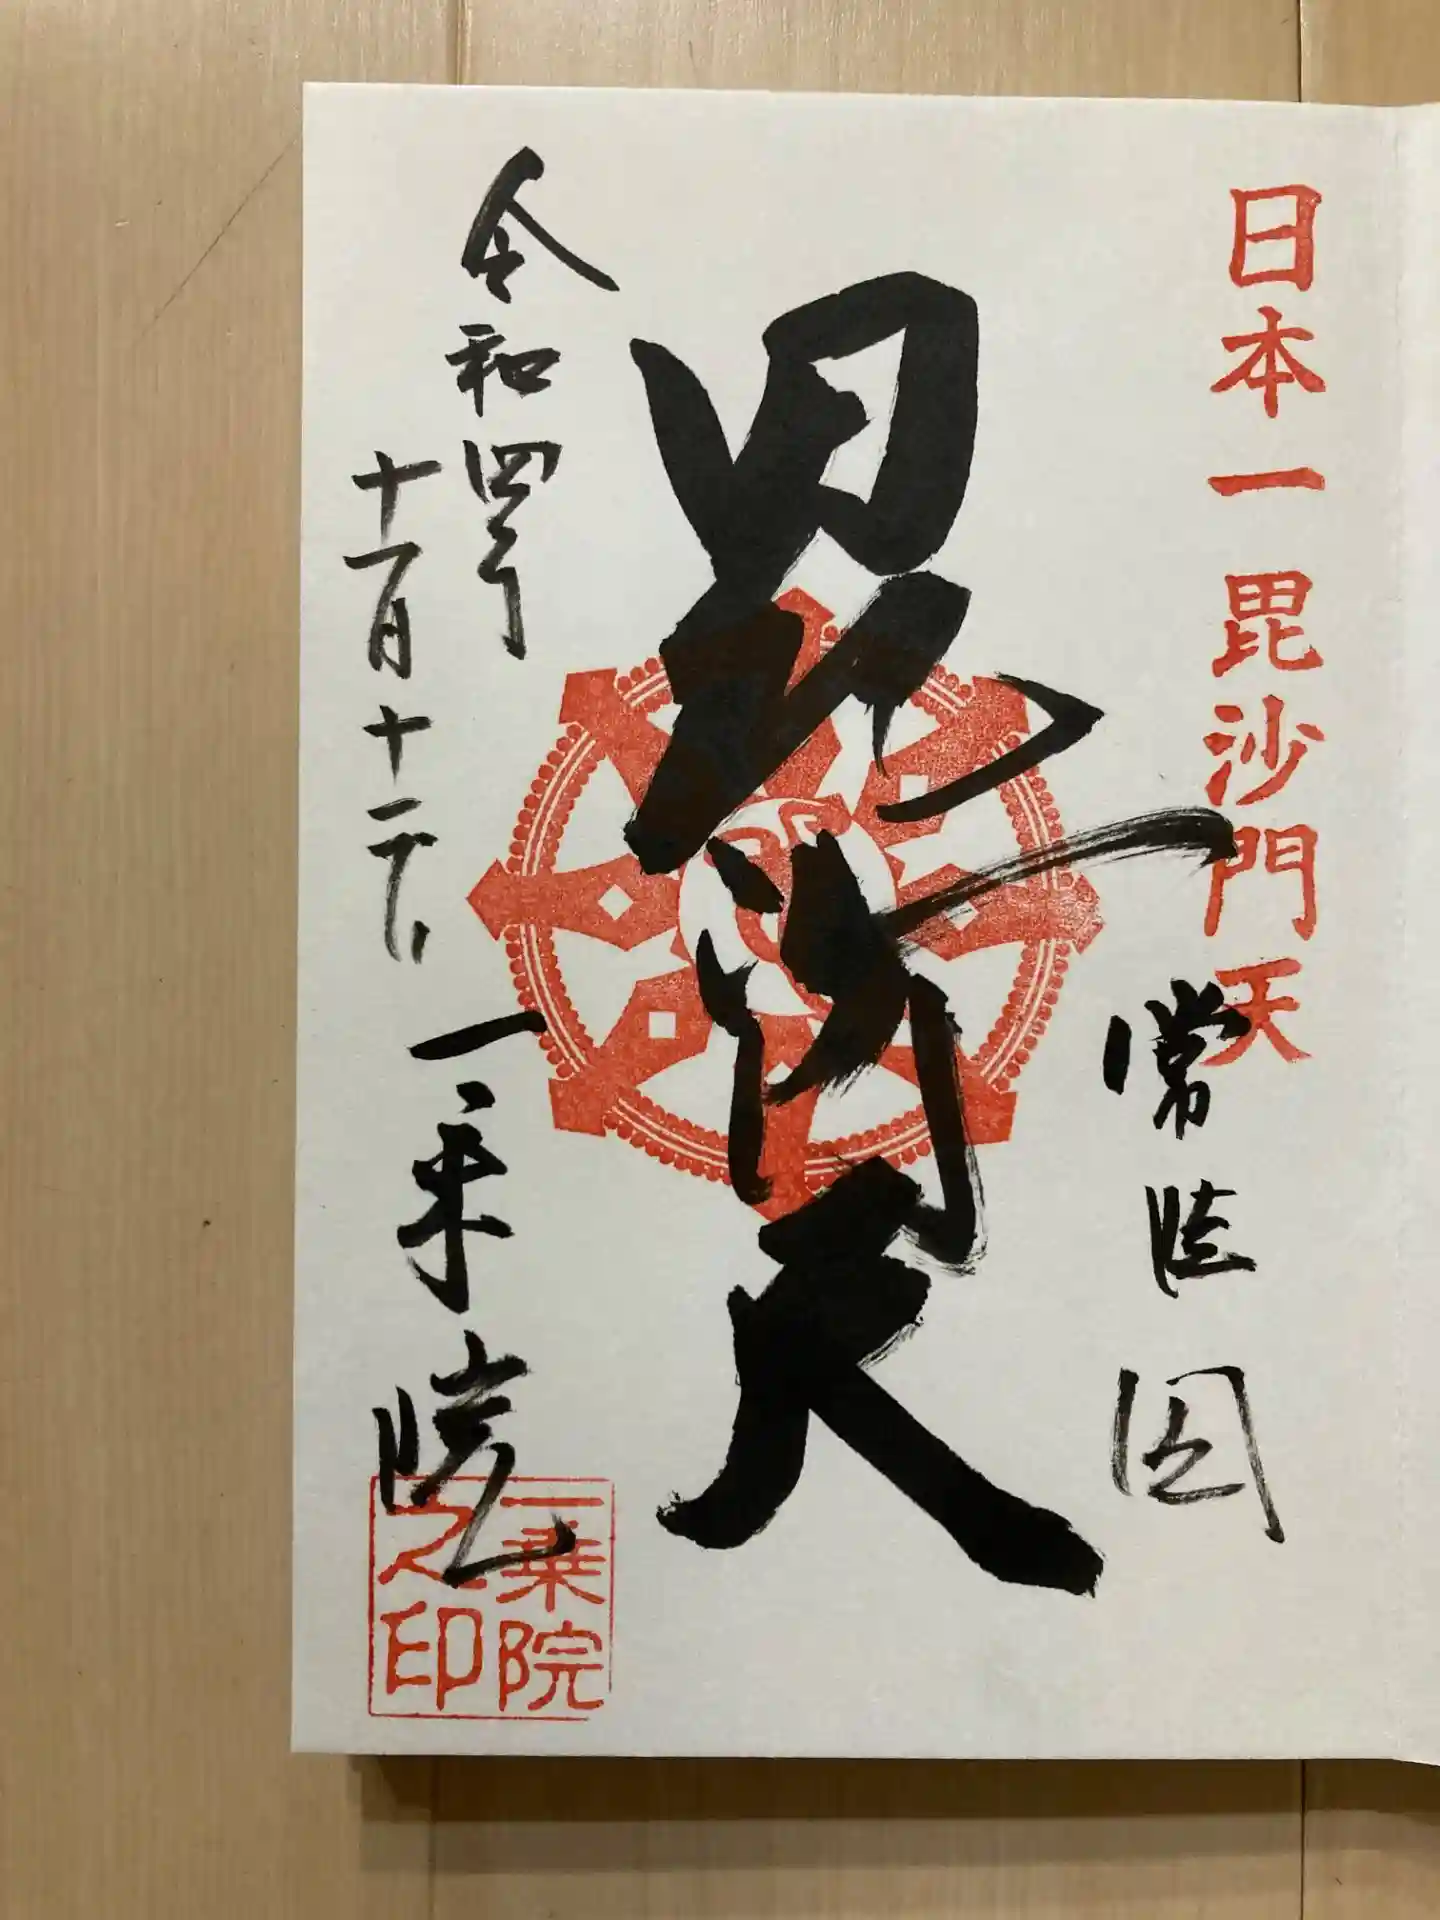 日本一毘沙門天
常陸国
毘沙門天
令和四年
十一月十二日
一乗院
一乗院
之印